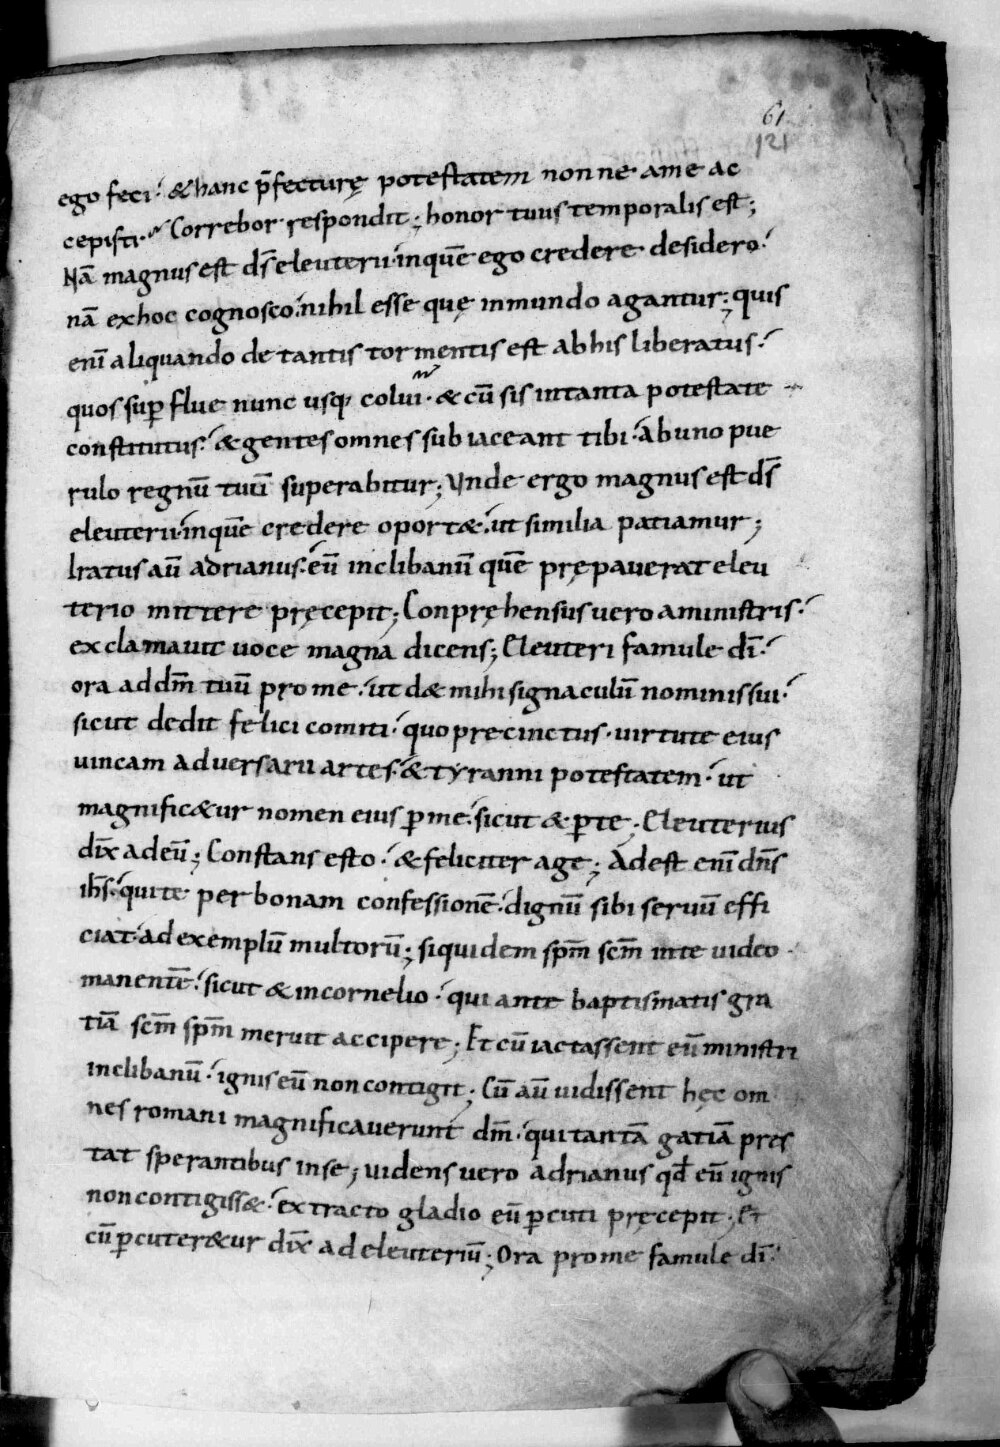 61
121
ego feci; & hanc p̄fecturę potestatem nonne ame ac
cepisti; Correbor respondit; honor tuus temporalis est;
Nā magnus est ds̄ eleuterii inquē ego credere desidero;
nā exhoc cognosco nihil esse quę inmundo agantur; quis
enī aliquando de tantis tormentis est abhis liberatus;
quos sup̄flue nunc usq; colui· & cū sis intanta potestate
constitutus· & gentes omnes subiaceant tibi· Abuno pue
rulo regnū tuū superabitur; Unde ergo magnus est ds̄
eleuterii inquē credere oport&· ut similia patiamur;
Iratus aū adrianus· eū inclibanū quē pręparauerat eleu
terio mittere pręcepit; Conpręhensus uero aministris·
exclamauit uoce magna dicens; Eleuteri famule dī·
ora addm̄ tuū pro me· ut d& mihi signaculū nominis sui·
sicut dedit felici comiti· quo precinctus· uirtute eius
uincam aduersarii artes· & tyranni potestatem· ut
magnific&ur nomen eius p̄ me· sicut & p̄ te; Eleuterius
dix̄ adeū; Constans esto· & feliciter age; Adest enī dn̄s
ih̄s· qui te per bonam confessionē· dignū sibi seruū effi
ciat· ad exemplū multorū; siquidem spm̄ scm̄ inte uideo
manentē· sicut & incornelio· qui ante baptismatis gra
tiā scm̄ spm̄ meruit accipere; Et cū iactassent eū ministri
inclibanū· ignis eū non contigit; Cū aū uidissent hęc om
nes romani magnificauerunt dm̄· qui tantā gatiā pres
tat sperantibus inse; uidens uero adrianus qd̄ eū ignis
non contigiss&· extracto gladio eū p̄cuti pręcepit; Et
cū p̄cuter&ur dix̄ ad eleuteriū; Ora pro me famule dī·